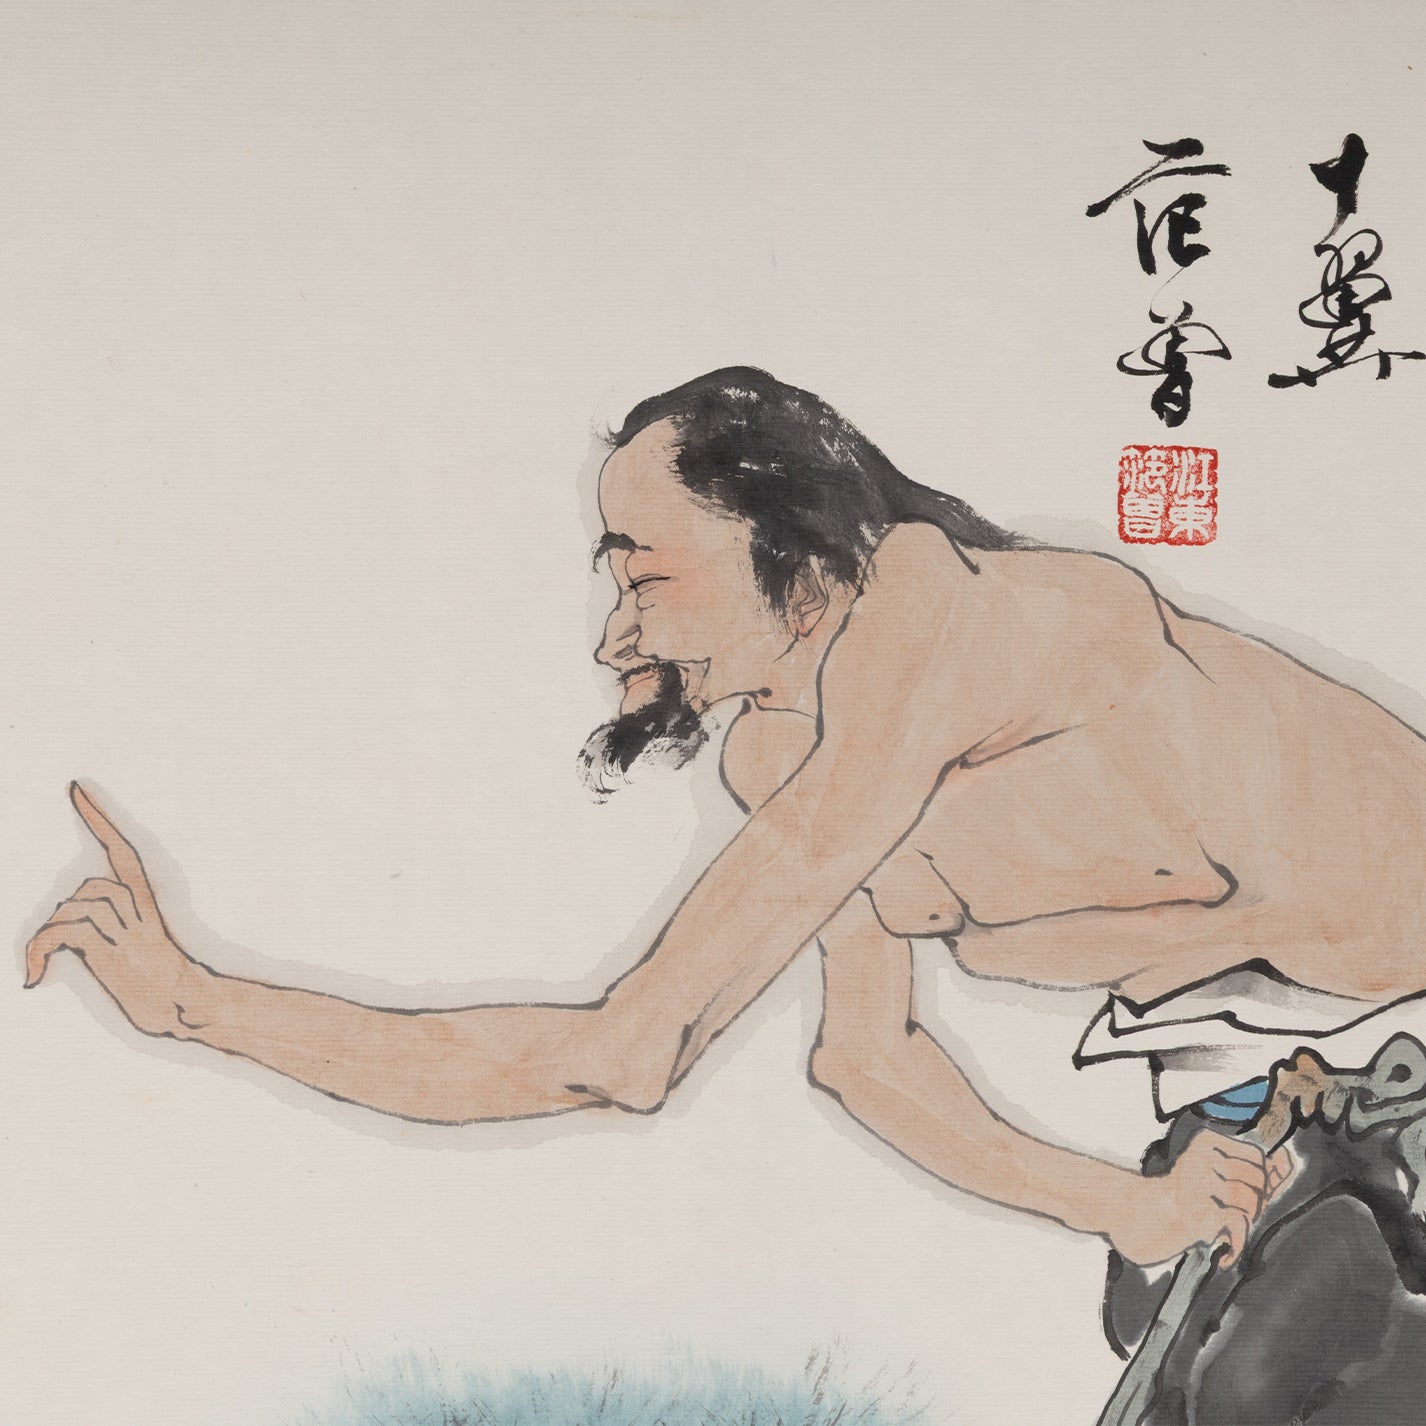 十翼
范曾
江東
范曾